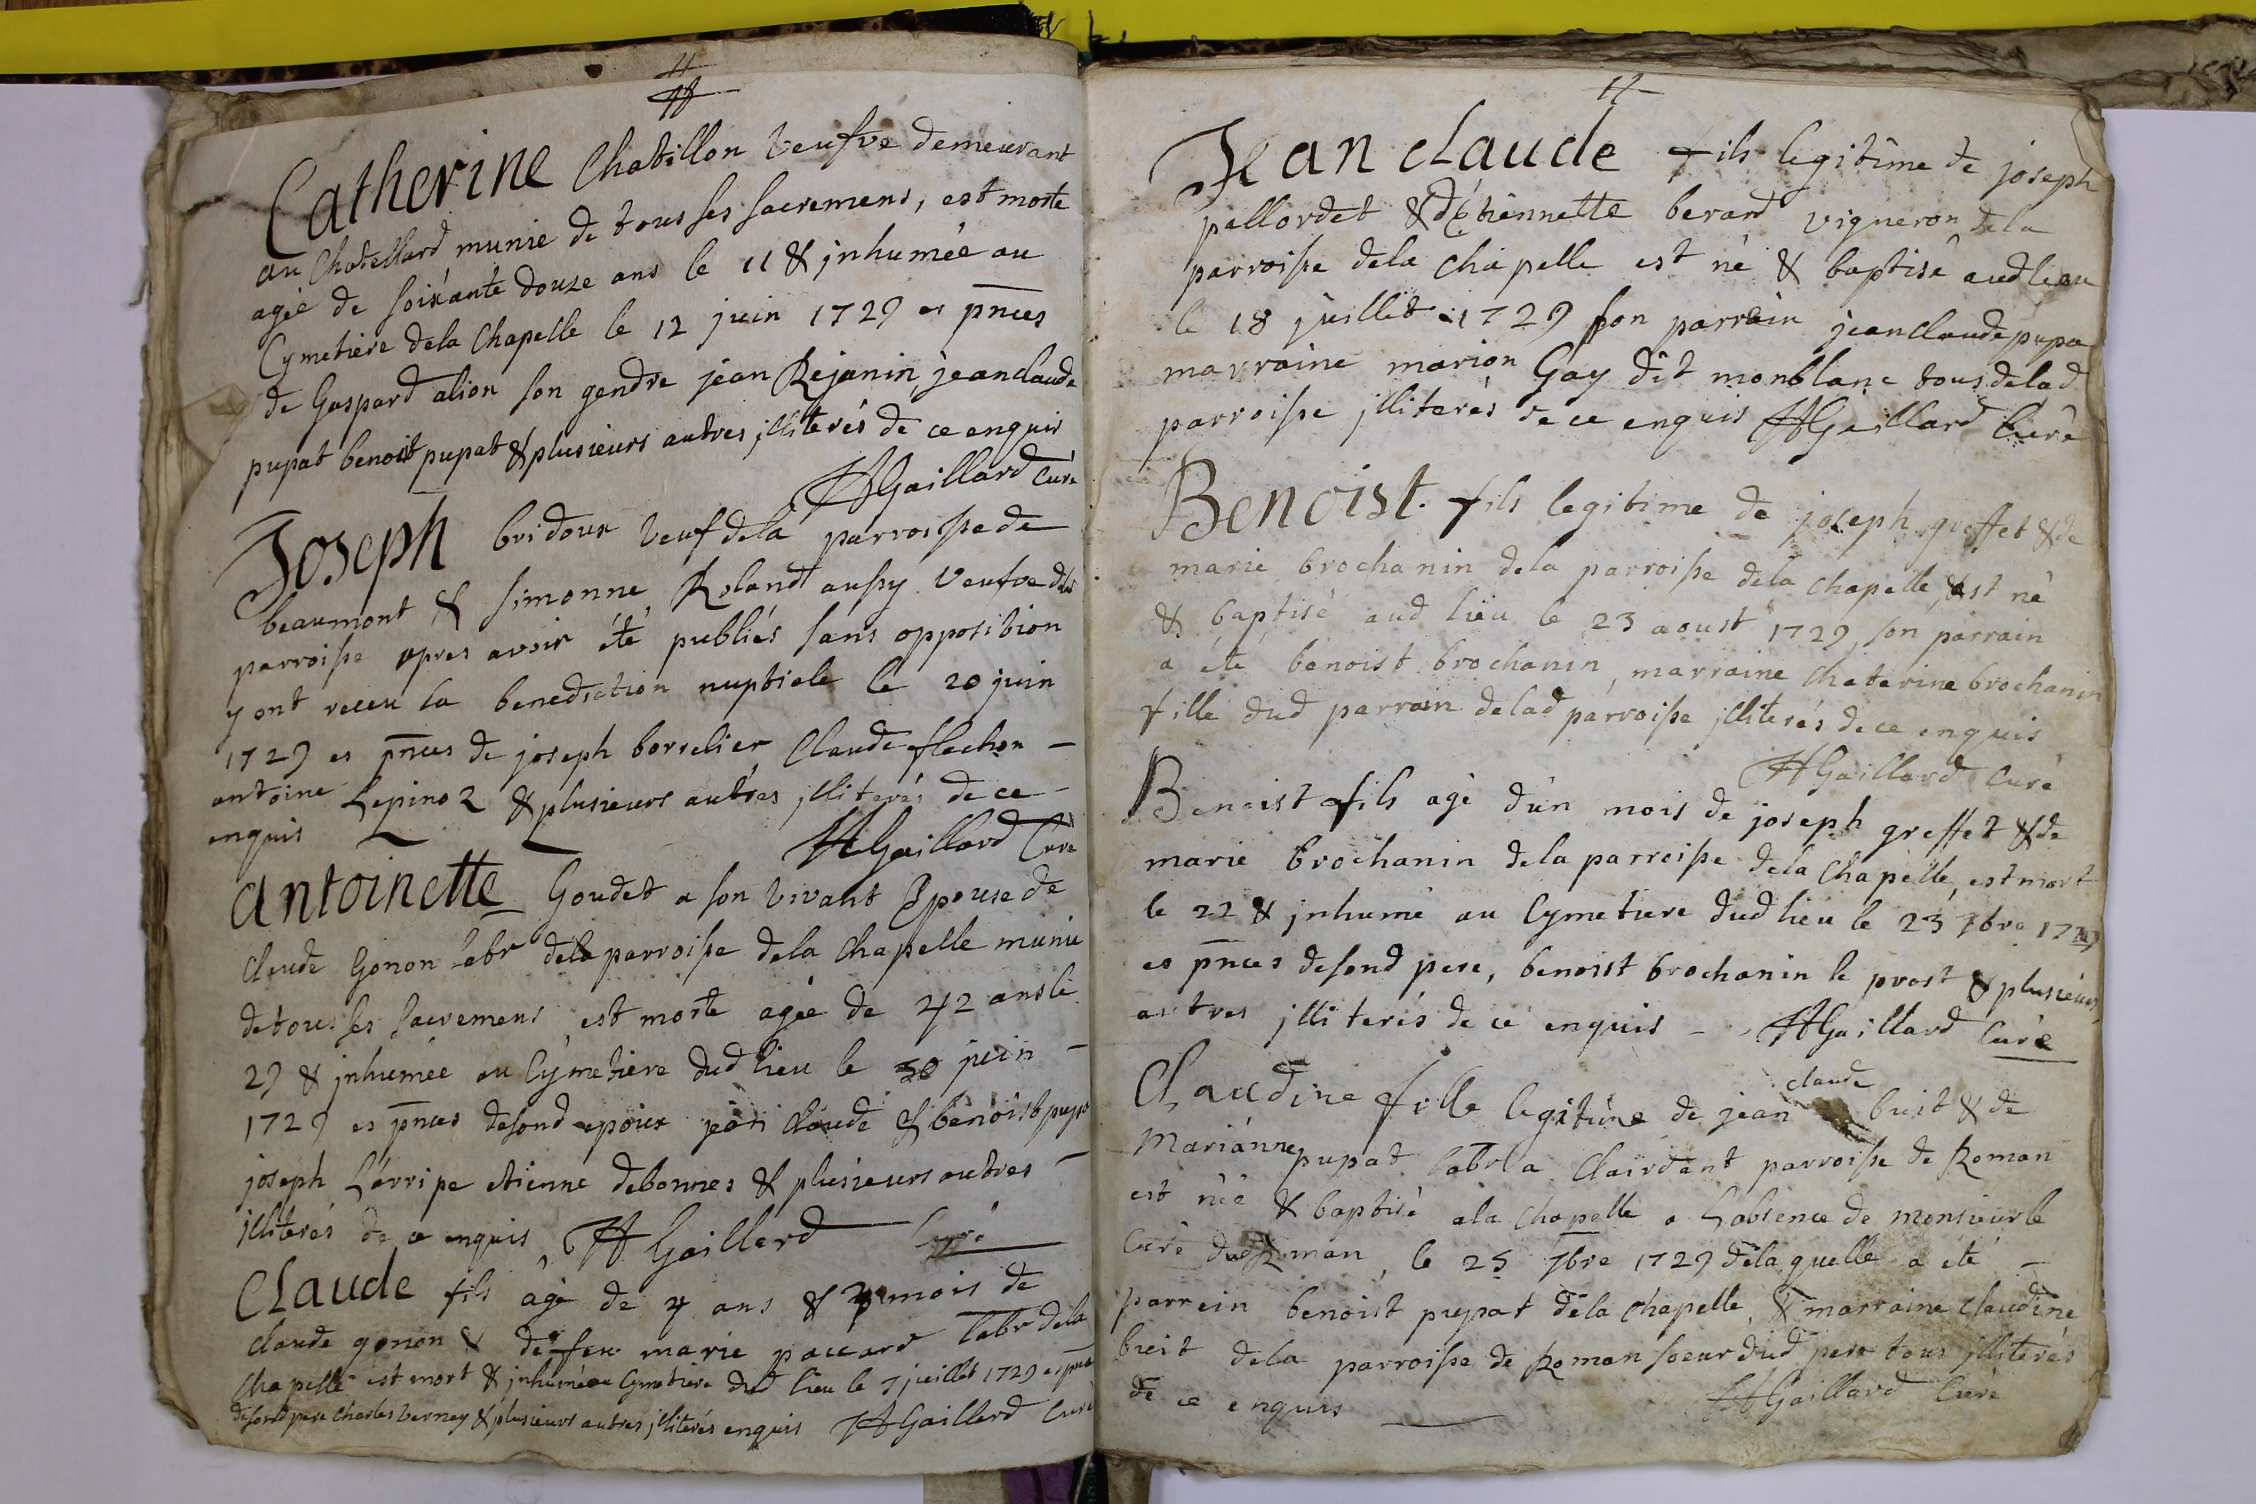 Catherine Chatillon veufve demeurant
au Chatellard munie de tous ses sacremens, est morte
agée de soixante douze ans le 11 & jnhumée au
Cymetiere dela Chapelle le 12 juin 1729 es pnces
de Gaspard alion son gendre jean Rejanin jeanclaude
pupat benoit pupat & plusieurs autres jlliterés de ce enquis
HGaillard Curé
Joseph bridoux veuf dela parroisse de
beaumont & simonne Roland aussy veufve dela
parroisse apres avoir été publiés sans opposition
y ont receu la benediction nuptiale le 20 juin
1729 es pnces de joseph borrelier Claude flechon
antoine Lepinoz & plusieurs autres jlliterés de ce
enquis HGaillard Curé
Antoinette Goudet a son vivant Epouse de
claude Gonon labr dela parroisse dela Chapelle munie
de tous ses sacremens est morte agée de 42 ans le
29 & jnhumée au Cymetiere dud lieu le 30 juin
1729 es pnces desond epoux jean claude & benoist pupat
joseph Larripe etienne debonnes & plusieurs autres
jlliterés de ce enquis HGaillard Curé
Claude fils âgé de 4 ans & mois de
claude gonon & de feu marie paccard labr dela
Chapelle est mort & jnhumé au Cymetiere dud lieu le 7 juillet 1729 es pnces
desond pere Charles verney & plusieurs autres jlliterés enquis HGaillard Curé
Jean claude fils legitime de joseph
pallordet & d'Etiennette berard vigneron dela
parroisse dela Chapelle est né & baptisé aud lieu
le 18 juillet 1729 son parrain jean claude pupa
marraine marion Gay dit monblanc tous delad
parroisse jlliterés de ce enquis HGaillard Curé
Benoist fils legitime de joseph greffet & de
marie brochanin dela parroisse dela Chapelle, est né
& baptisé aud lieu le 23 aoust 1729, son parrain
a été benoist brochanin, marraine Chaterine brochanin
fille dud parrain delad parroisse jlliterés de ce enquis
HGaillard Curé
Benoist fils agé d'un mois de joseph greffet & de
marie brochanin dela parroisse dela Chapelle, est mort
le 22 & jnhumé au Cymetiere dud lieu le 23 7bre 1729
es pnces desond pere, benoist brochanin le prost & plusieurs
autres jlliterés de ce enquis - HGaillard Curé
Claudine fille legitime de jean claude buit & de
Marianne pupat labr a Clairdant parroisse de Roman
est née & baptisé ala Chapelle a Labsence de monsieur le
Curé dud Roman, le 25 7bre 1729 dela quelle a eté
parrein benoist pupat dela Chapelle, & marraine claudine
buit dela parroisse de Roman soeur dud pere tous jlliterés
de ce enquis HGaillard Curé